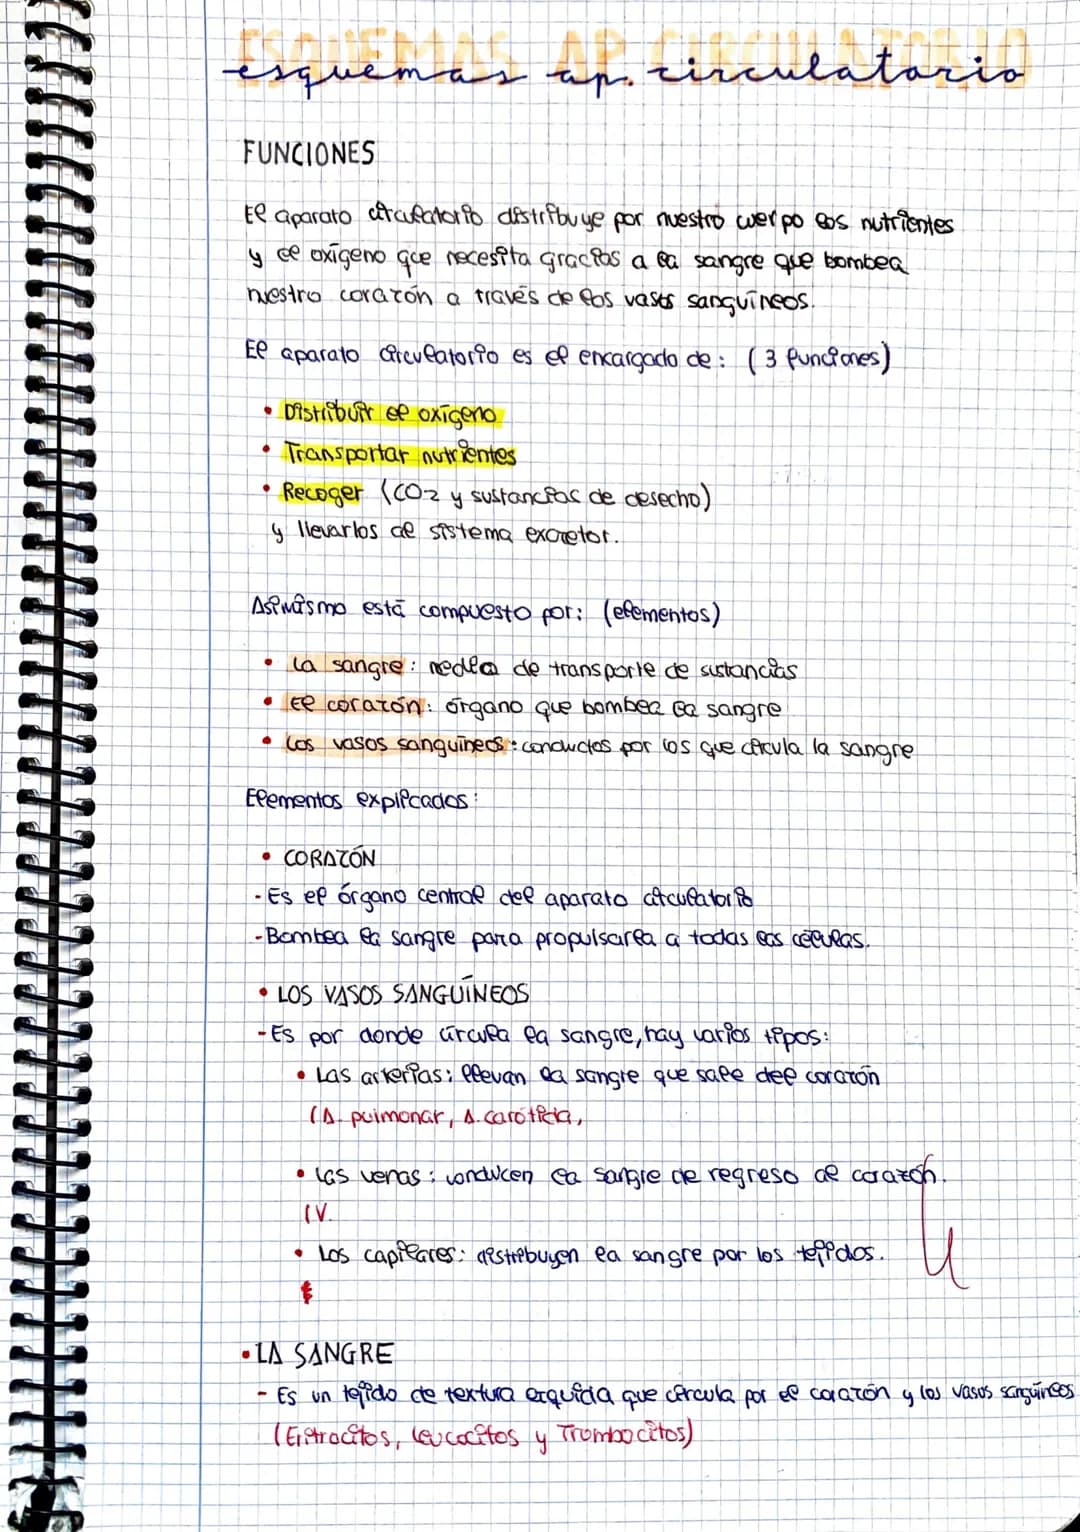 ESQUEMAS AP. CIRCULATORIO
esquemas ap. circulatorio
FUNCIONES
El aparato circulatorio distribuye por nuestro cuerpo los nutrientes
y el oxígeno que necesita gracias a la sangre que bombea
nuestro corazón a través de los vasos sanguíneos.
El aparato circulatorio es el encargado de: (3 funciones)
• Distribuir el oxígeno
• Transportar nutrientes
• Recoger (CO2 y sustancias de desecho)
y llevarlos al sistema excretor.
Asimismo está compuesto por: (elementos)
• La sangre: medio de transporte de sustancias
• El corazón: órgano que bombea la sangre
• Los vasos sanguíneos: conductos por los que circula la sangre
Elementos explicados:
• CORAZÓN
- Es el órgano central del aparato circulatorio
- Bombea la sangre para propulsarla a todas las células.
• LOS VASOS SANGUÍNEOS
- Es por donde circula la sangre, hay varios tipos:
• Las arterias: llevan la sangre que sale del corazón
(A. pulmonar, A. carótida,
• Las venas: conducen la sangre de regreso al corazón.
(V.
• Los capilares: distribuyen la sangre por los tejidos.
• LA SANGRE
- Es un tejido de textura líquida que circula por el corazón y los vasos sanguíneos
(Eritrocitos, Leucocitos y Trombocitos)